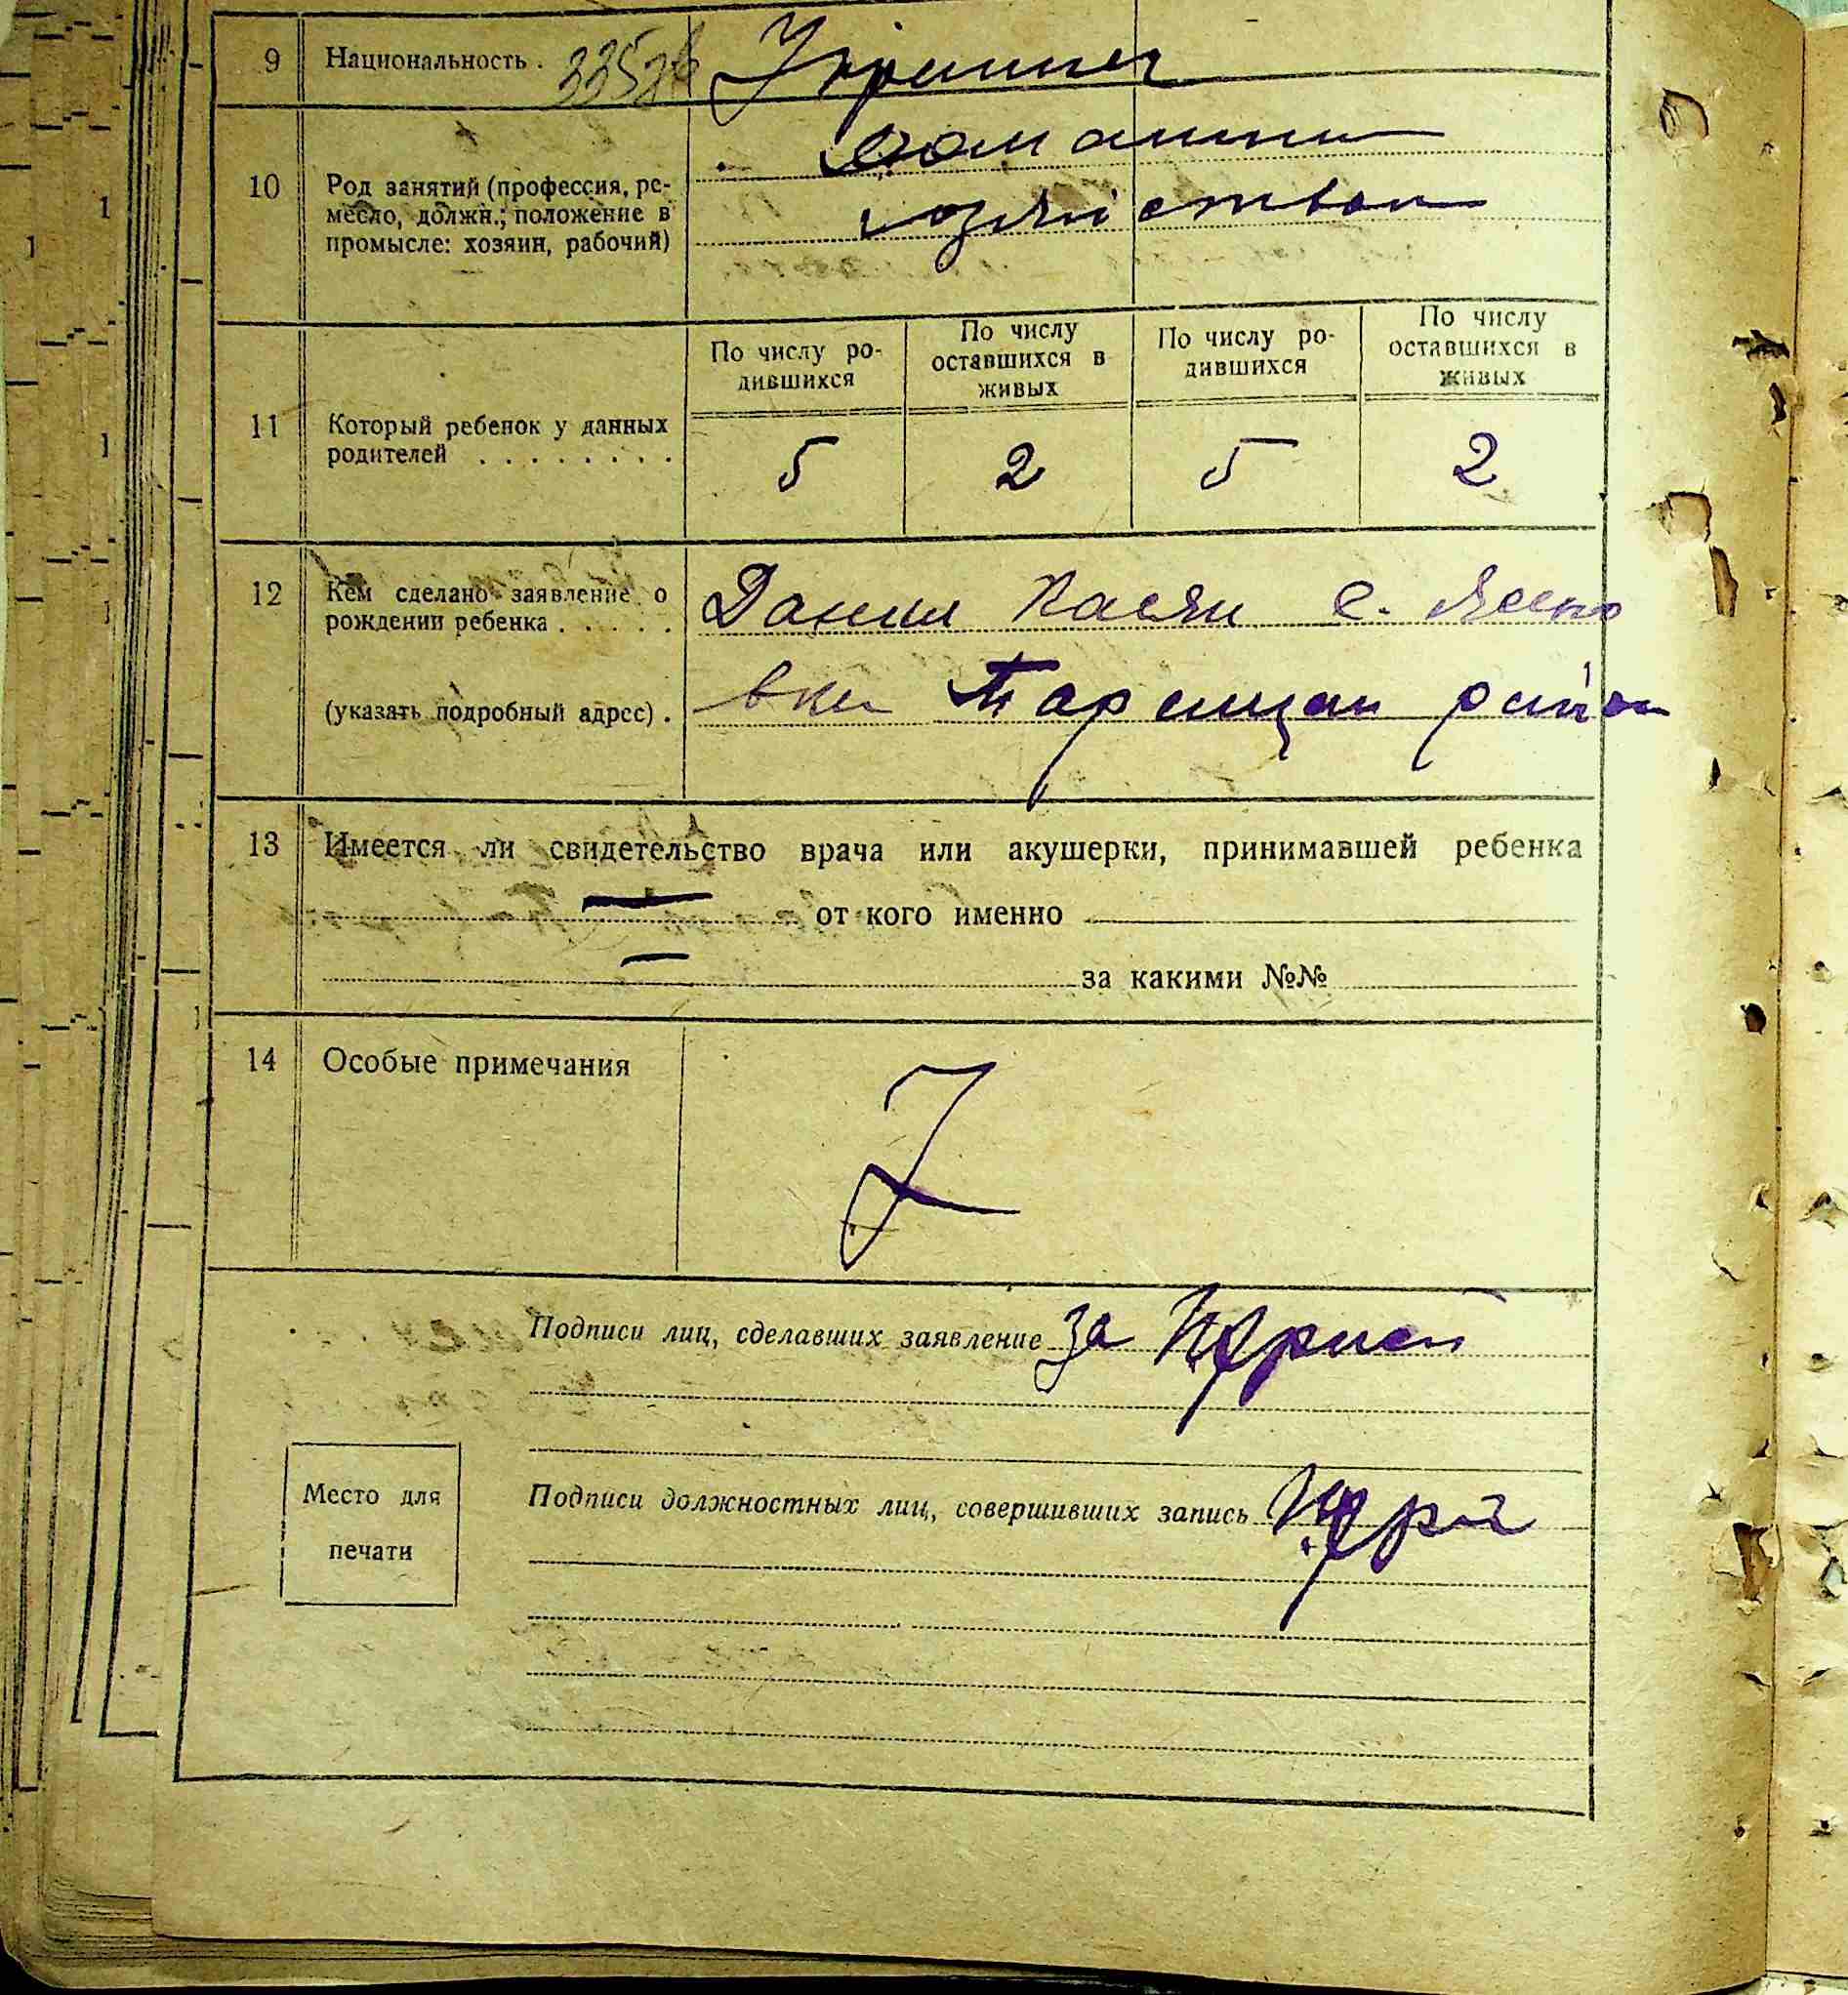 9 Национальность .
10 Род занятий (профессия, ре-
месло, должн.; положение в
промысле: хозяин, рабочий)
По числу ро-
дившихся
По числу
оставшихся в
живых
По числу ро-
дившихся
По числу
оставшихся в
живых
11 Который ребенок у данных
родителей . . . . . . . .
5 2 5 2
12 Кем сделано заявление о
рождении ребенка . . . . .
Данил Касян с.
(указать подробный адрес) .
район
13 Имеется ли свидетельство врача или акушерки, принимавшей ребенка
— от кого именно
— за какими №№
14 Особые примечания
Подписи лиц, сделавших заявление за
Место для
печати
Подписи должностных лиц, совершивших запись